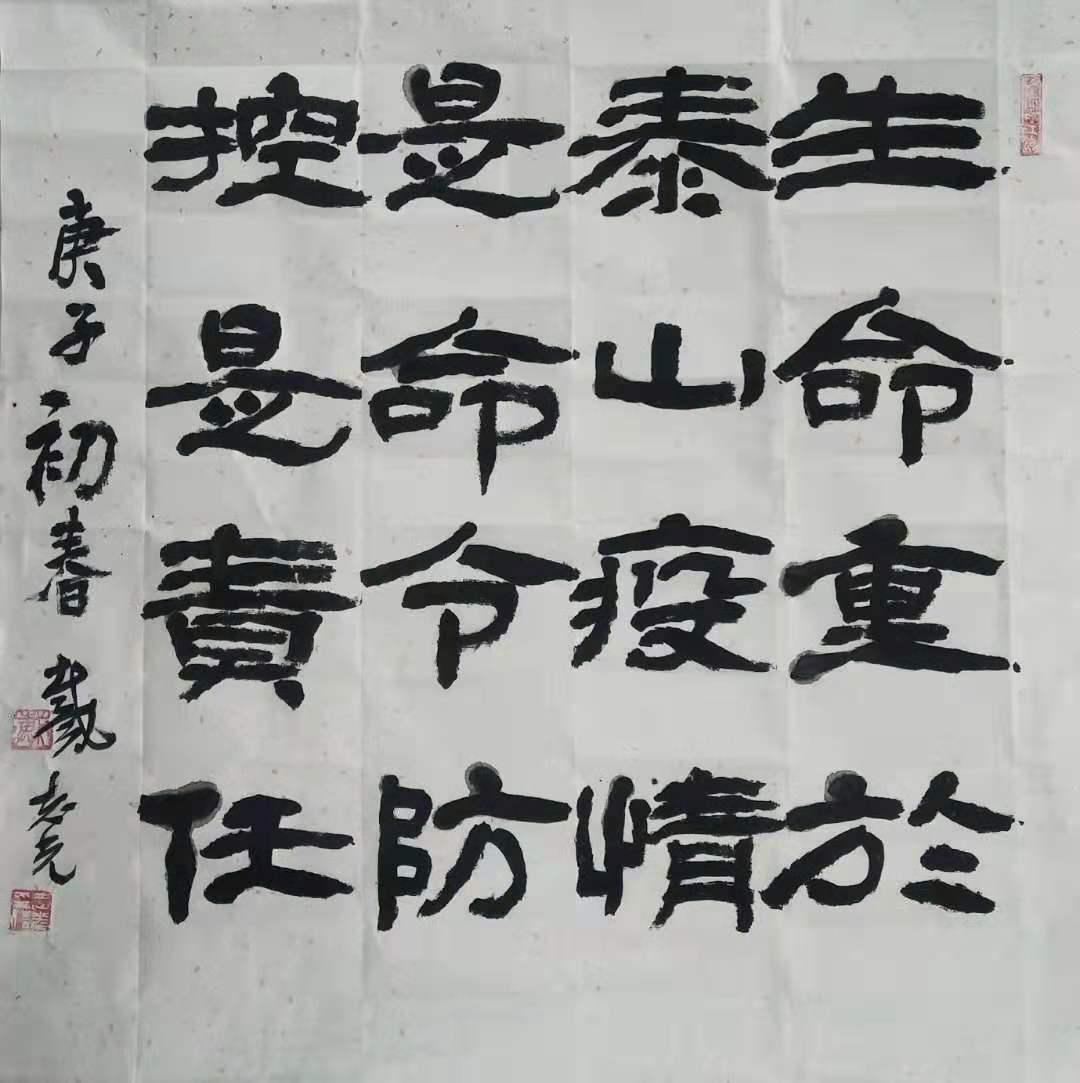 生命重於
泰山疫情
是命令防
控是責任
庚子初春 戴志克